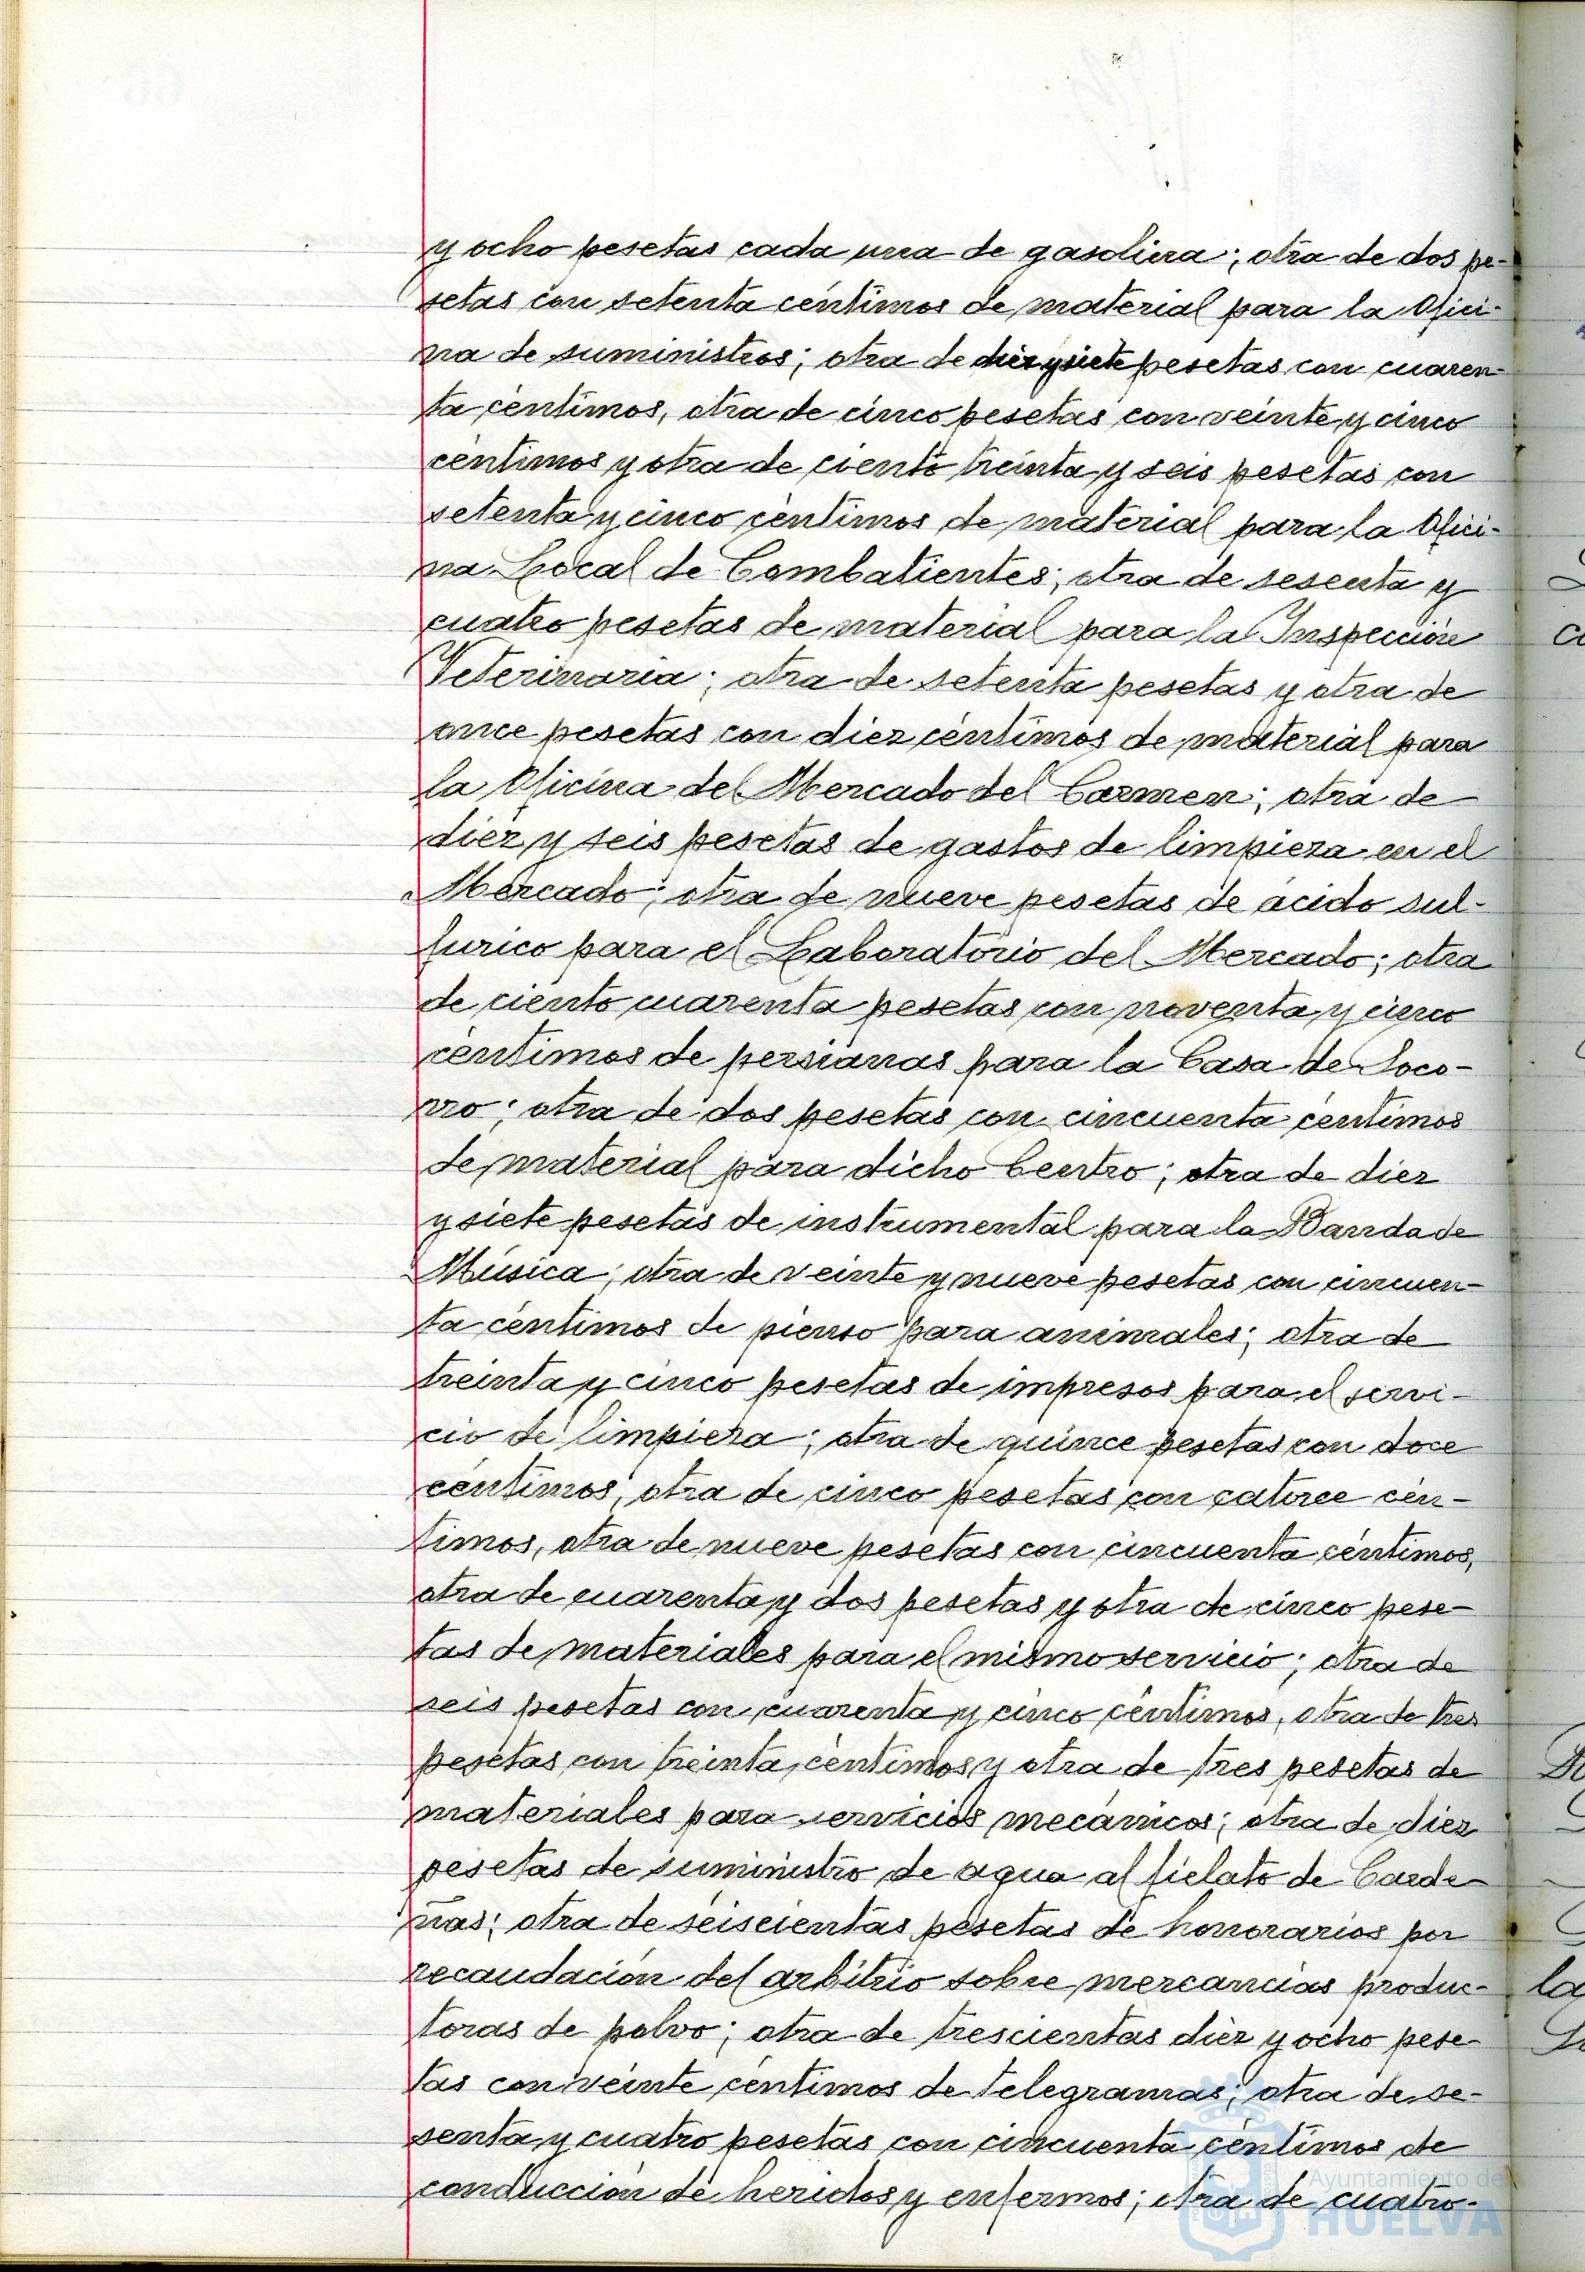 y ocho pesetas cada una de gasolina; otra de dos pe-
setas con setenta céntimos de material para la Ofici-
na de suministros; otra de diez y siete pesetas con cuaren-
ta céntimos, otra de cinco pesetas con veinte y cinco
céntimos y otra de ciento treinta y seis pesetas con
setenta y cinco céntimos de material para la Ofici-
na Local de Combatientes; otra de sesenta y
cuatro pesetas de material para la Inspección
Veterinaria; otra de setenta pesetas y otra de
once pesetas con diez céntimos de material para
la Oficina del Mercado del Carmen; otra de
diez y seis pesetas de gastos de limpieza en el
Mercado; otra de nueve pesetas de ácido sul-
furico para el Laboratorio del Mercado; otra
de ciento cuarenta pesetas con noventa y cinco
céntimos de persianas para la Casa de Soco-
rro; otra de dos pesetas con cincuenta céntimos
de material para dicho Centro; otra de diez
y siete pesetas de instrumental para la Banda de
Música; otra de veinte y nueve pesetas con cincuen-
ta céntimos de pienso para animales; otra de
treinta y cinco pesetas de impresos para el servi-
cio de limpieza; otra de quince pesetas con doce
céntimos, otra de cinco pesetas con catorce cén-
timos, otra de nueve pesetas con cincuenta céntimos,
otra de cuarenta y dos pesetas y otra de cinco pese-
tas de materiales para el mismo servicio; otra de
seis pesetas con cuarenta y cinco céntimos, otra de tres
pesetas con treinta céntimos y otra de tres pesetas de
materiales para servicios mecánicos; otra de diez
pesetas de suministro de agua al fielato de Carde-
ñas; otra de seiscientas pesetas de honorarios por
recaudación del arbitrio sobre mercancias produc-
toras de polvo; otra de trescientas diez y ocho pese-
tas con veinte céntimos de telegramas; otra de se-
senta y cuatro pesetas con cincuenta céntimos de
conducción de heridos y enfermos; otra de cuatro-
Ayuntamiento de
HUELVA